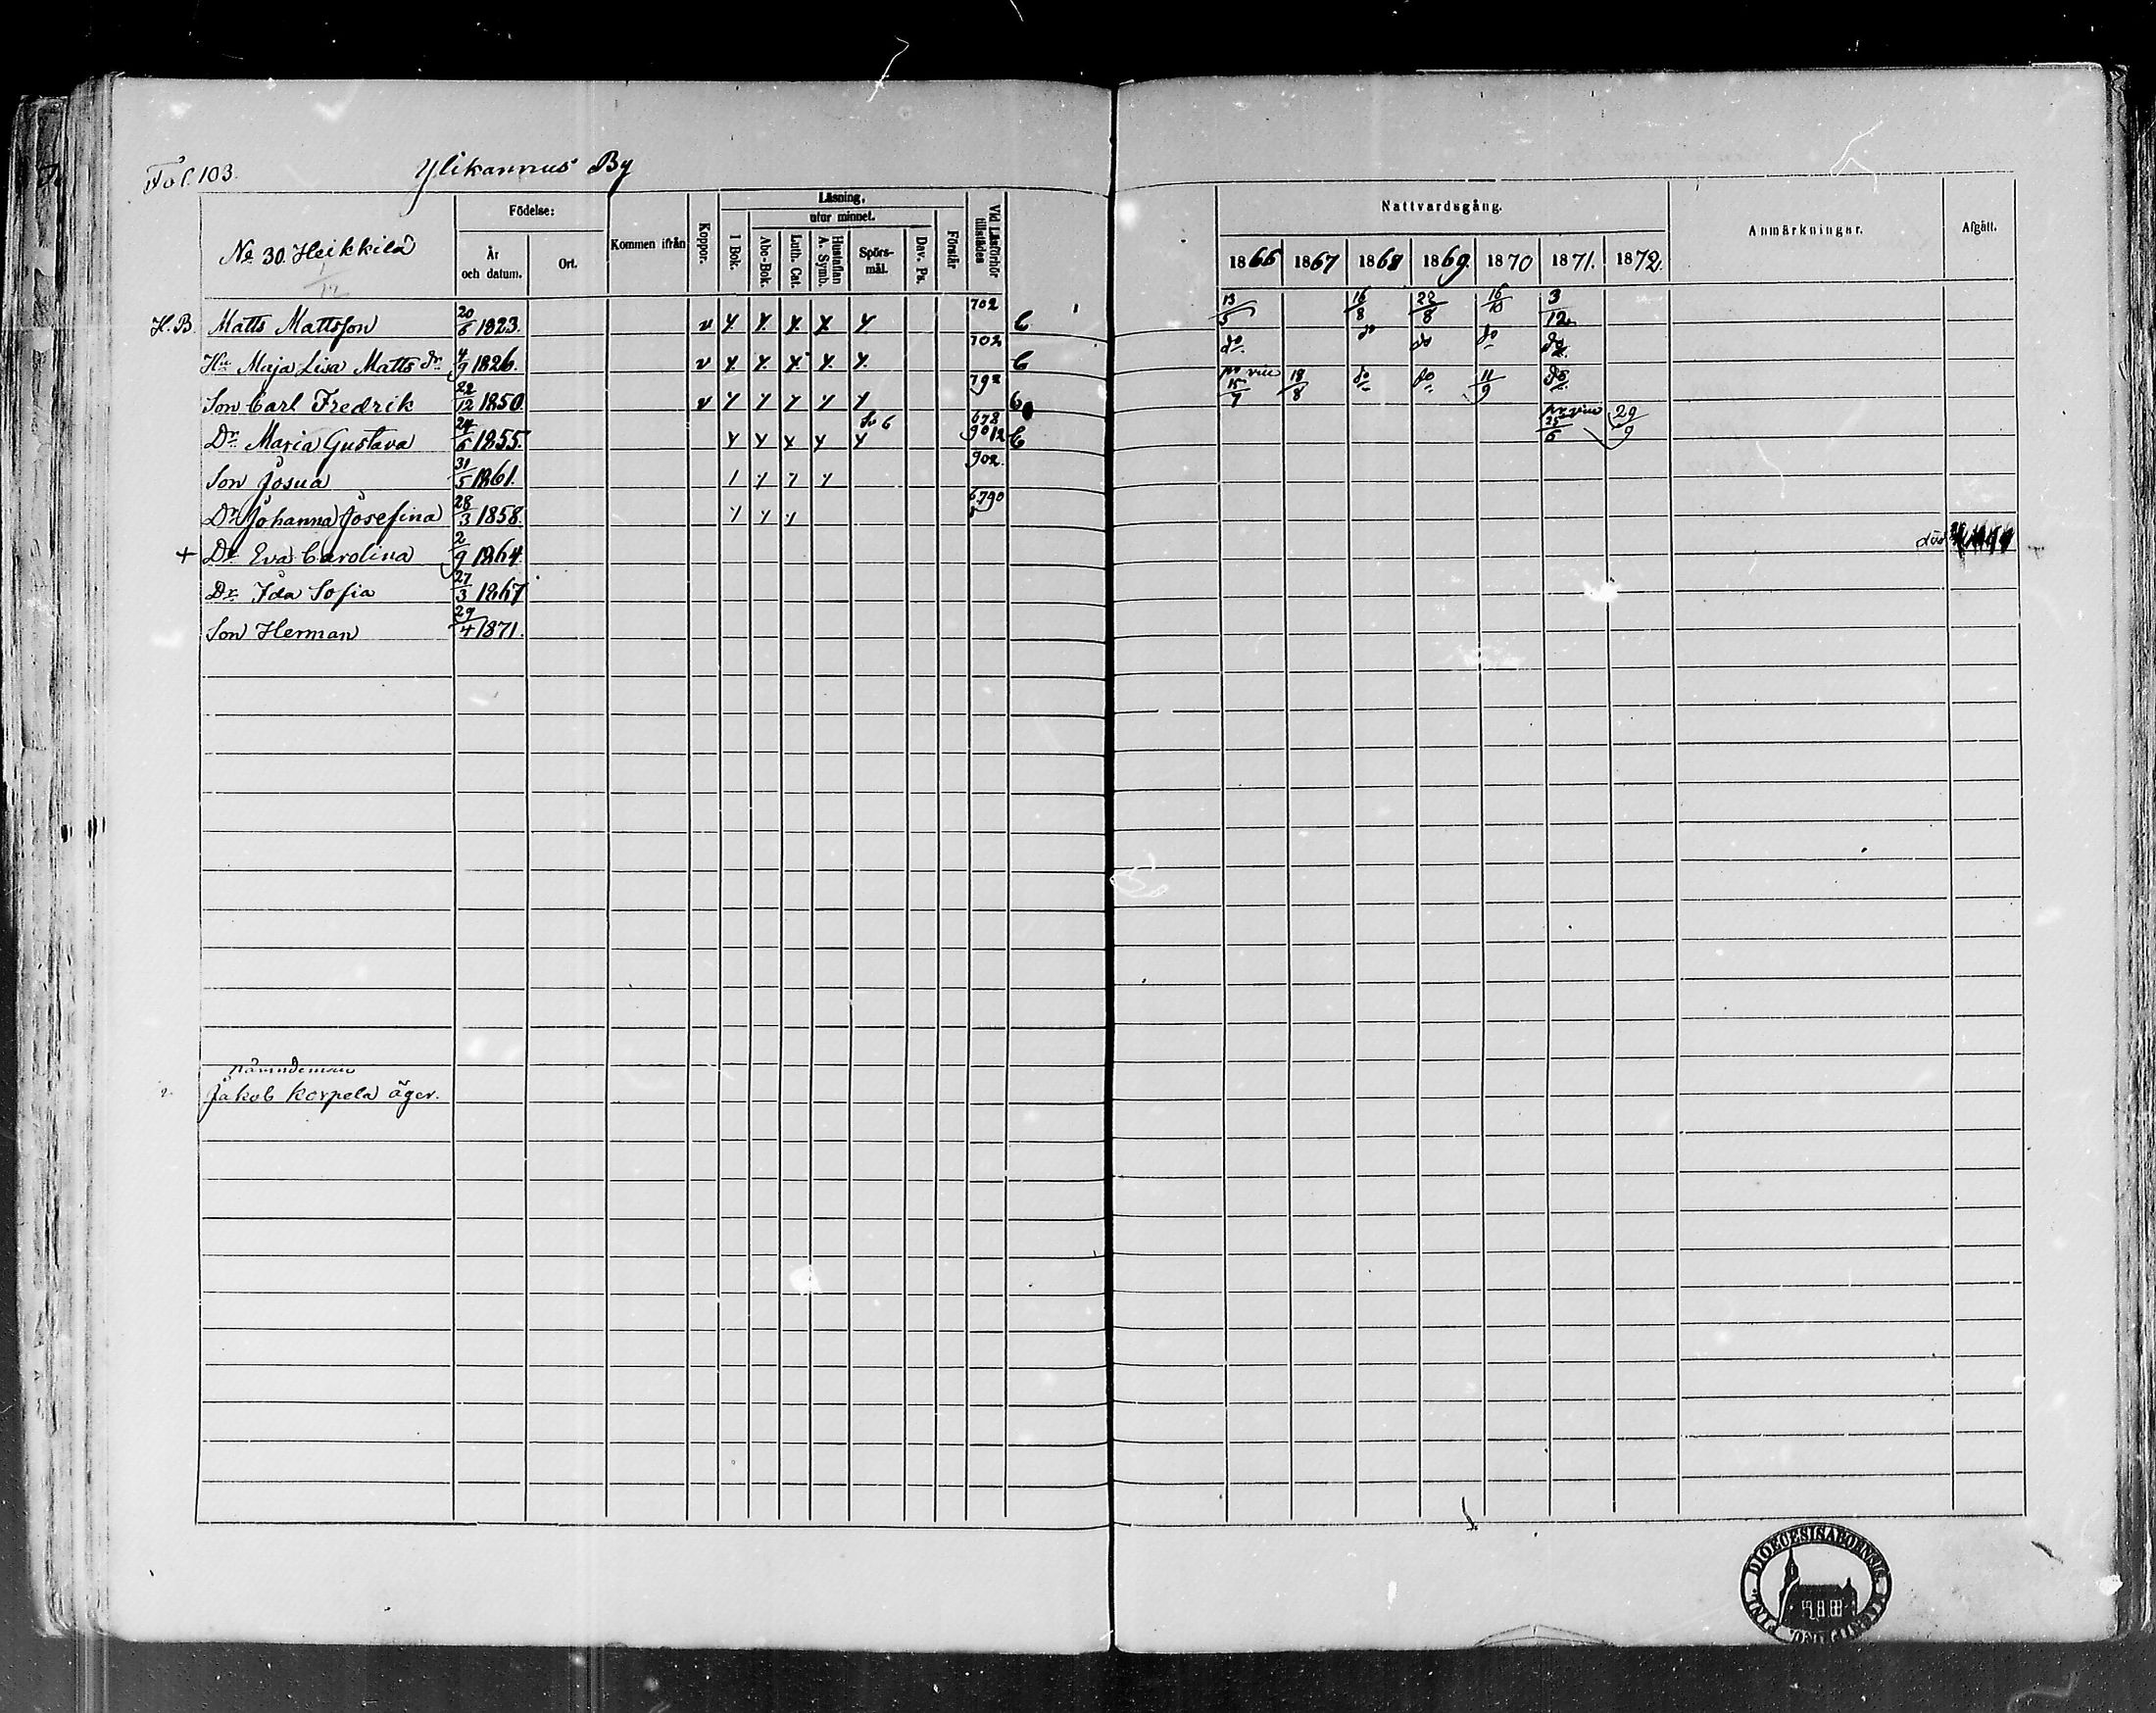 Fol. 103.
Ylikannus By
No 30. Heikkilä
1/12
Födelse:
År och datum.
Ort.
Kommen ifrån
Koppor.
Läsning,
utur minnet.
I Bok.
Abc-Bok.
Luth. Cat.
Hustaflan A. Symb.
Spörsmål.
Dav. Ps.
Förstår
Vid Läsförhör tillstädes
Nattvardsgång.
1866 1867 1868 1869. 1870 1871. 1872.
Anmärkningar.
Afgått.
H. B. Matts Mattsson 20/6 1823. v 702 C 13/5 16/8 22/8 16/10 3/12
Hu Maja Lisa Matts dr 4/9 1826. v 702 C do do do do do
Son Carl Fredrik 22/12 1850. v 792 15/7 18/8 do do 11/9 do
Dr Maria Gustava 24/6 1855. 678 9012 C 25/6 29/9
Son Josua 31/5 1861. 902.
Dr Johanna Josefina 28/3 1858. 6790
+ Dr Eva Carolina 2/9 1864. död
Dr Ida Sofia 27/3 1867
Son Herman 29/4 1871.
Nämndeman
Jakob Korpela äger.
FINL. DIOECESIS ABOENSIS